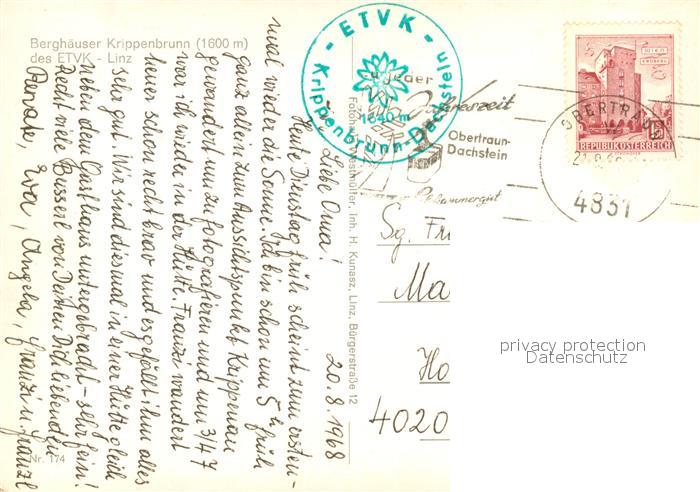 Berghäuser Krippenbrunn (1600 m)
des ETVK - Linz
ETVK
Krippenbrunn-Dachstein
1640 m
zu jeder
Jahreszeit
Obertraun-
Dachstein
Salzkammergut
OBERTRAUN
4831
WIEN
ERDBERG
REPUBLIK ÖSTERREICH
20.8.1968
Liebe Oma!
Heute Dienstag früh scheint zum ersten-
mal wieder die Sonne. Ich bin schon um 5h früh
ganz allein zum Aussichtspunkt Krippenau
gewandert um zu fotografieren und um 3/4 7
war ich wieder in der Hütte. Franzi wandert
heuer schon recht brav und es gefällt ihm alles
sehr gut. Wir sind diesmal in einer Hütte gleich
neben dem Gasthaus untergebracht - sehr fein!
Recht viele Busserl von Deinen Dich liebenden
Renate, Eva, Angela, Franzi u. Franzl
Inh. H. Kunasz, Linz, Bürgerstraße 12
Nr. 174
Sg. Fr
Ma
Ho
4020
privacy protection
Datenschutz